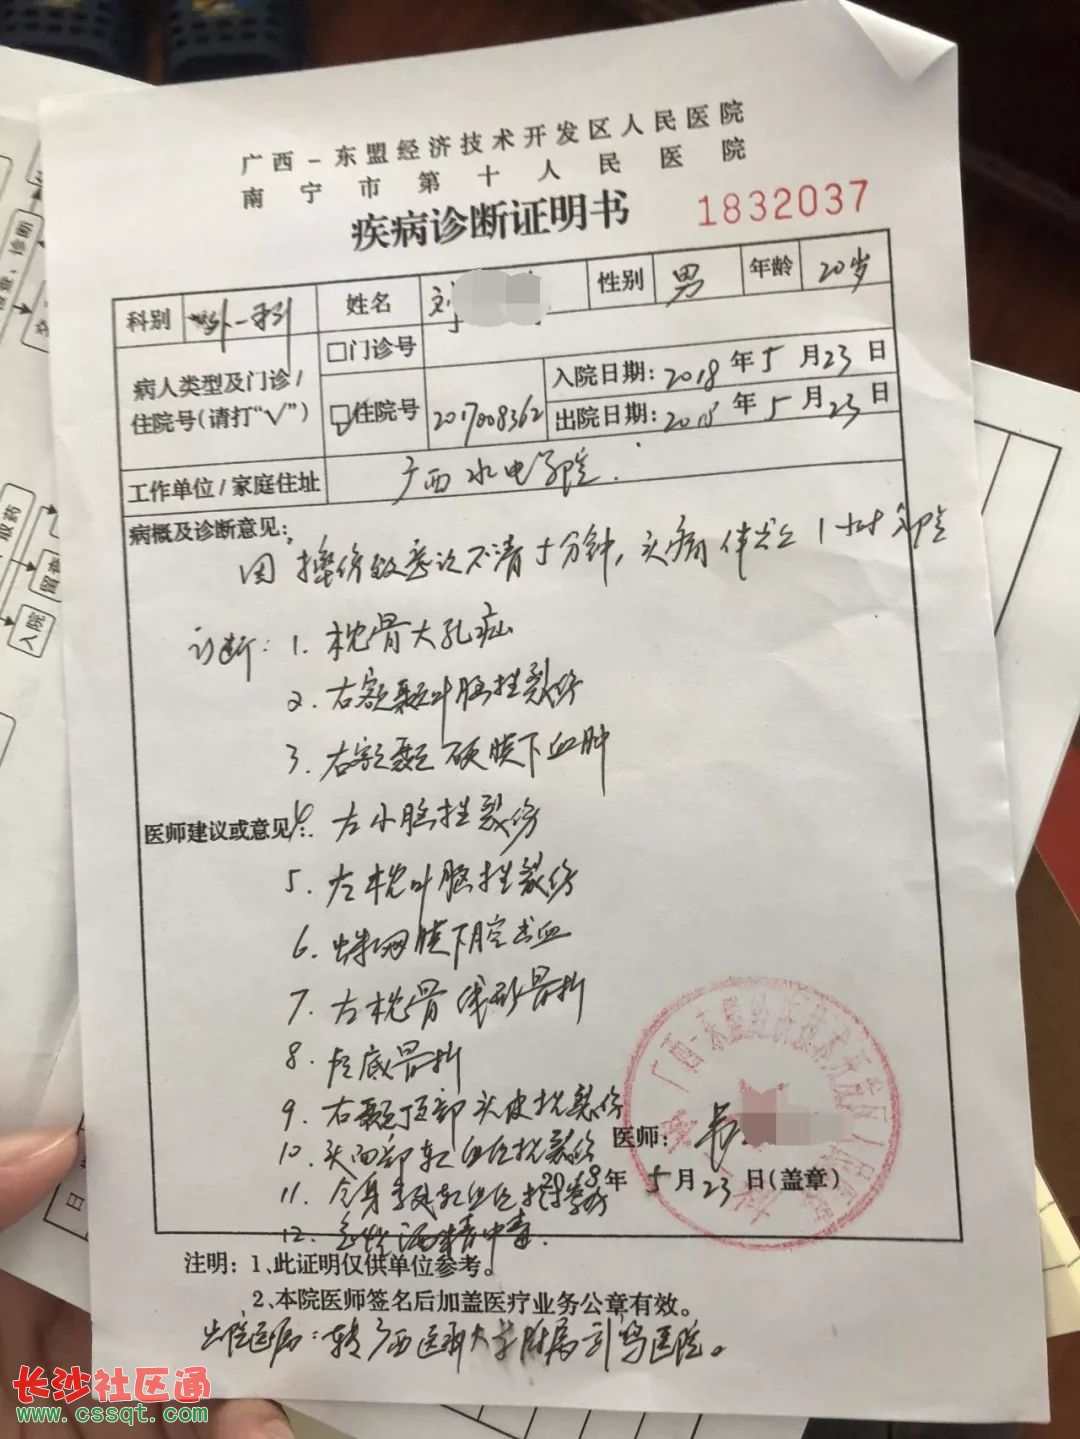 广西-东盟经济技术开发区人民医院
南宁市第十人民医院
疾病诊断证明书 1832037
科别 外一科 姓名 刘 性别 男 年龄 20岁
病人类型及门诊/住院号(请打“√”) □门诊号
□住院号 2017008362
入院日期:2018年5月23日
出院日期:2018年5月23日
工作单位/家庭住址 广西水电学院.
病概及诊断意见:
因摔伤致意识不清5分钟,头痛伴 1小时入院
诊断:1.枕骨大孔疝
2.右额颞叶脑挫裂伤
3.右额颞硬膜下血肿
医师建议或意见:
4.左小脑挫裂伤
5.左枕叶脑挫裂伤
6.蛛网膜下腔出血
7.左枕骨线形骨折
8.颅底骨折
9.右颞顶部头皮挫裂伤
10.头面部软组织挫裂伤
11.全身多处软组织挫擦伤
12.急性酒精中毒.
医师:
2018年5月23日(盖章)
广西-东盟经济技术开发区人民医院
注明:1、此证明仅供单位参考。
2、本院医师签名后加盖医疗业务公章有效。
出院医嘱:转广西医科大学附属 医院。
长沙社区通
www.cssqt.com
入院
取药